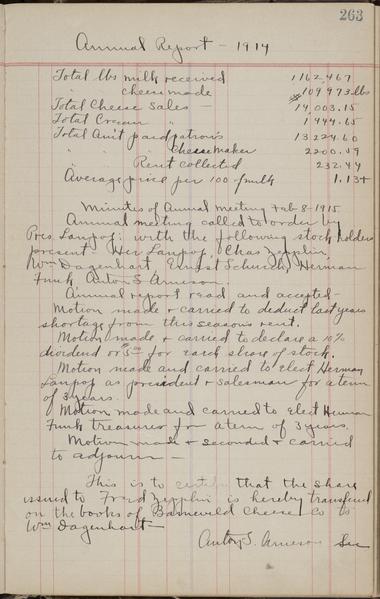 263
Annual Report - 1914
Total lbs milk received 1162467
" cheese made 109973 lbs
Total Cheese Sales - 14,003.15
Total Cream " 1444.65
Total Am't paid patrons 13224.60
" " " Cheesemaker 2200.59
" Rent collected 232.44
Average price per 100# milk 1.13+
Minutes of Annual meeting Feb-8-1915
Annual meeting called to order by
Pres. Lanpof: with the following stock holders
present Her. Lanpof, Chas Zepplin,
Wm Dagenhart, Ernst Schuch, Herman
Funk Anton S. Arneson.
Annual report read and accepted -
Motion made & carried to deduct last years
shortage from this seasons rent.
Motion made & carried to declare a 10%
dividend or for each share of stock.
Motion made and carried to elect Herman
Lanpof as president & salesman for a term
of 3 years.
Motion made and carried to Elect Herman
Funk treasurer for a term of 3 years.
Motion made & seconded & carried
to adjourn -
This is to certify that the share
issued to Fred Zepplin is hereby transfered
on the books of Barneveld Cheese Co to
Wm Dagenhart -
Anton S. Arneson Sec